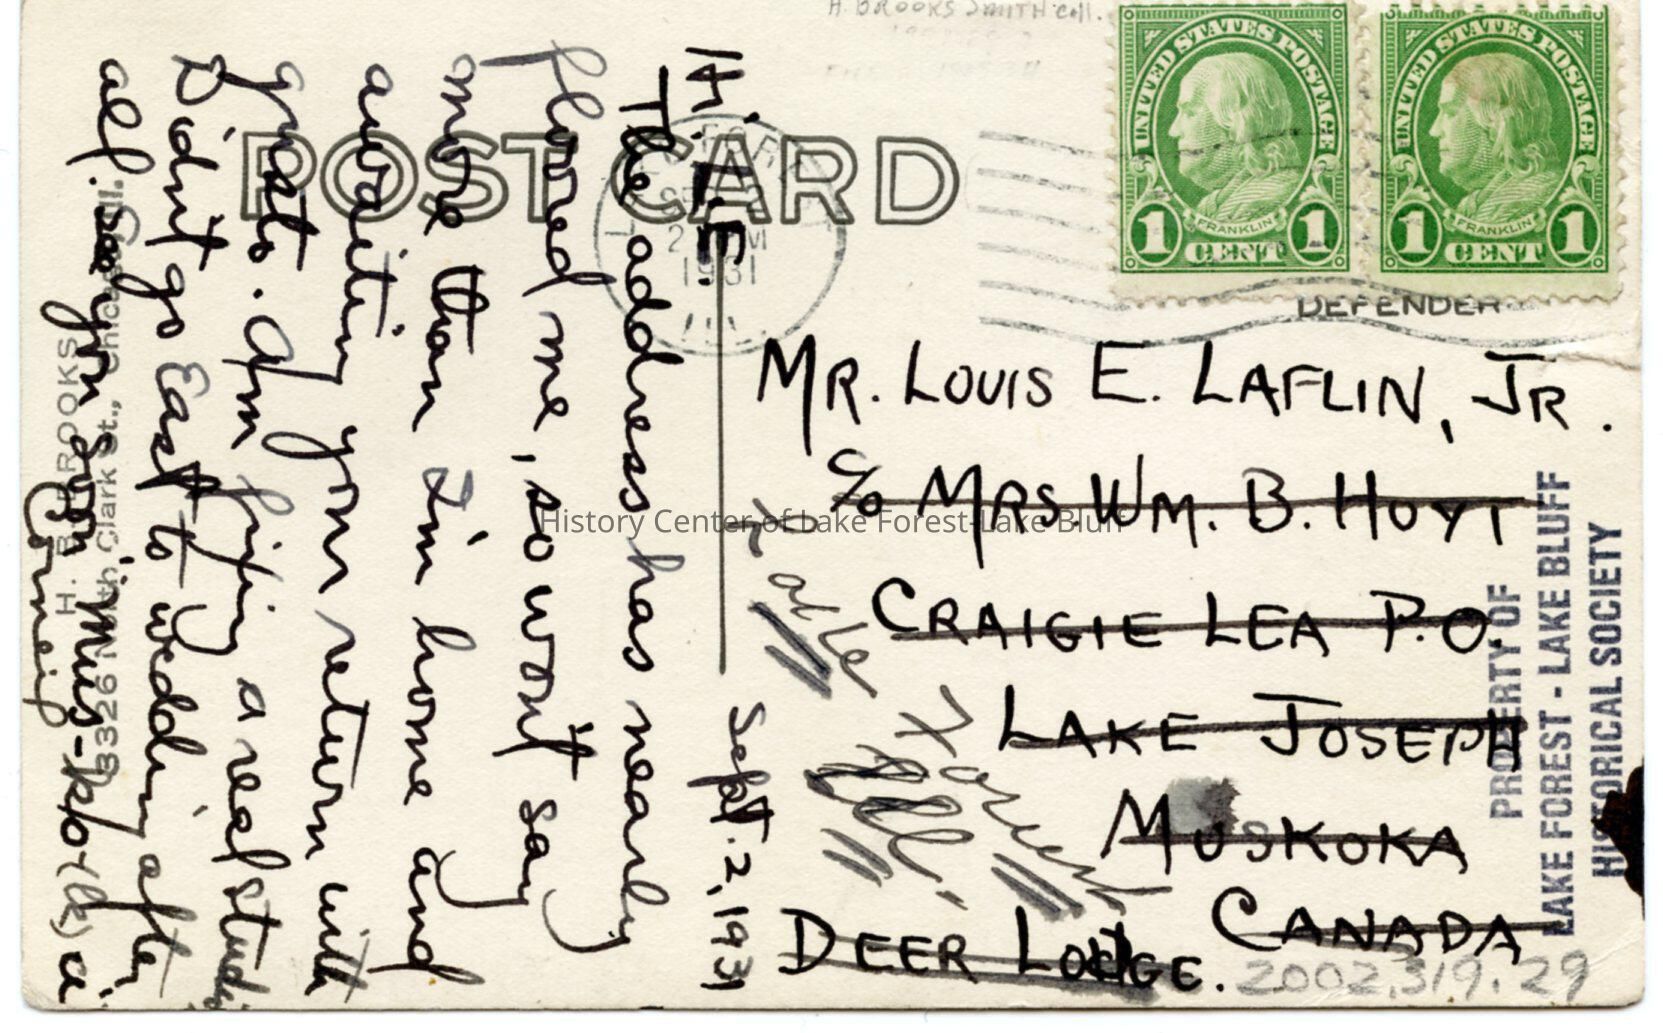 H. BROOKS SMITH coll.
UNITED STATES POSTAGE
FRANKLIN
1 CENT 1
UNITED STATES POSTAGE
FRANKLIN
1 CENT 1
DEFENDER
POST CARD
SEP 2
1931
ILL
Hi.
The address has nearly
floored me, so won't say
more than I'm home and
awaiting your return with
gusto. Am fixing a real studio
Didn't go East to wedding after
all. See you soon
Sept. 2, 1931
MR. LOUIS E. LAFLIN, JR.
c/o MRS. WM. B. HOYT
CRAIGIE LEA P.O.
LAKE JOSEPH
MUSKOKA
CANADA
DEER LODGE.
Lake Forest
Ill.
H. B. BROOKS
3326 North Clark St., Chicago, Ill.
PROPERTY OF
LAKE FOREST - LAKE BLUFF
HISTORICAL SOCIETY
2002.319.29
History Center of Lake Forest-Lake Bluff